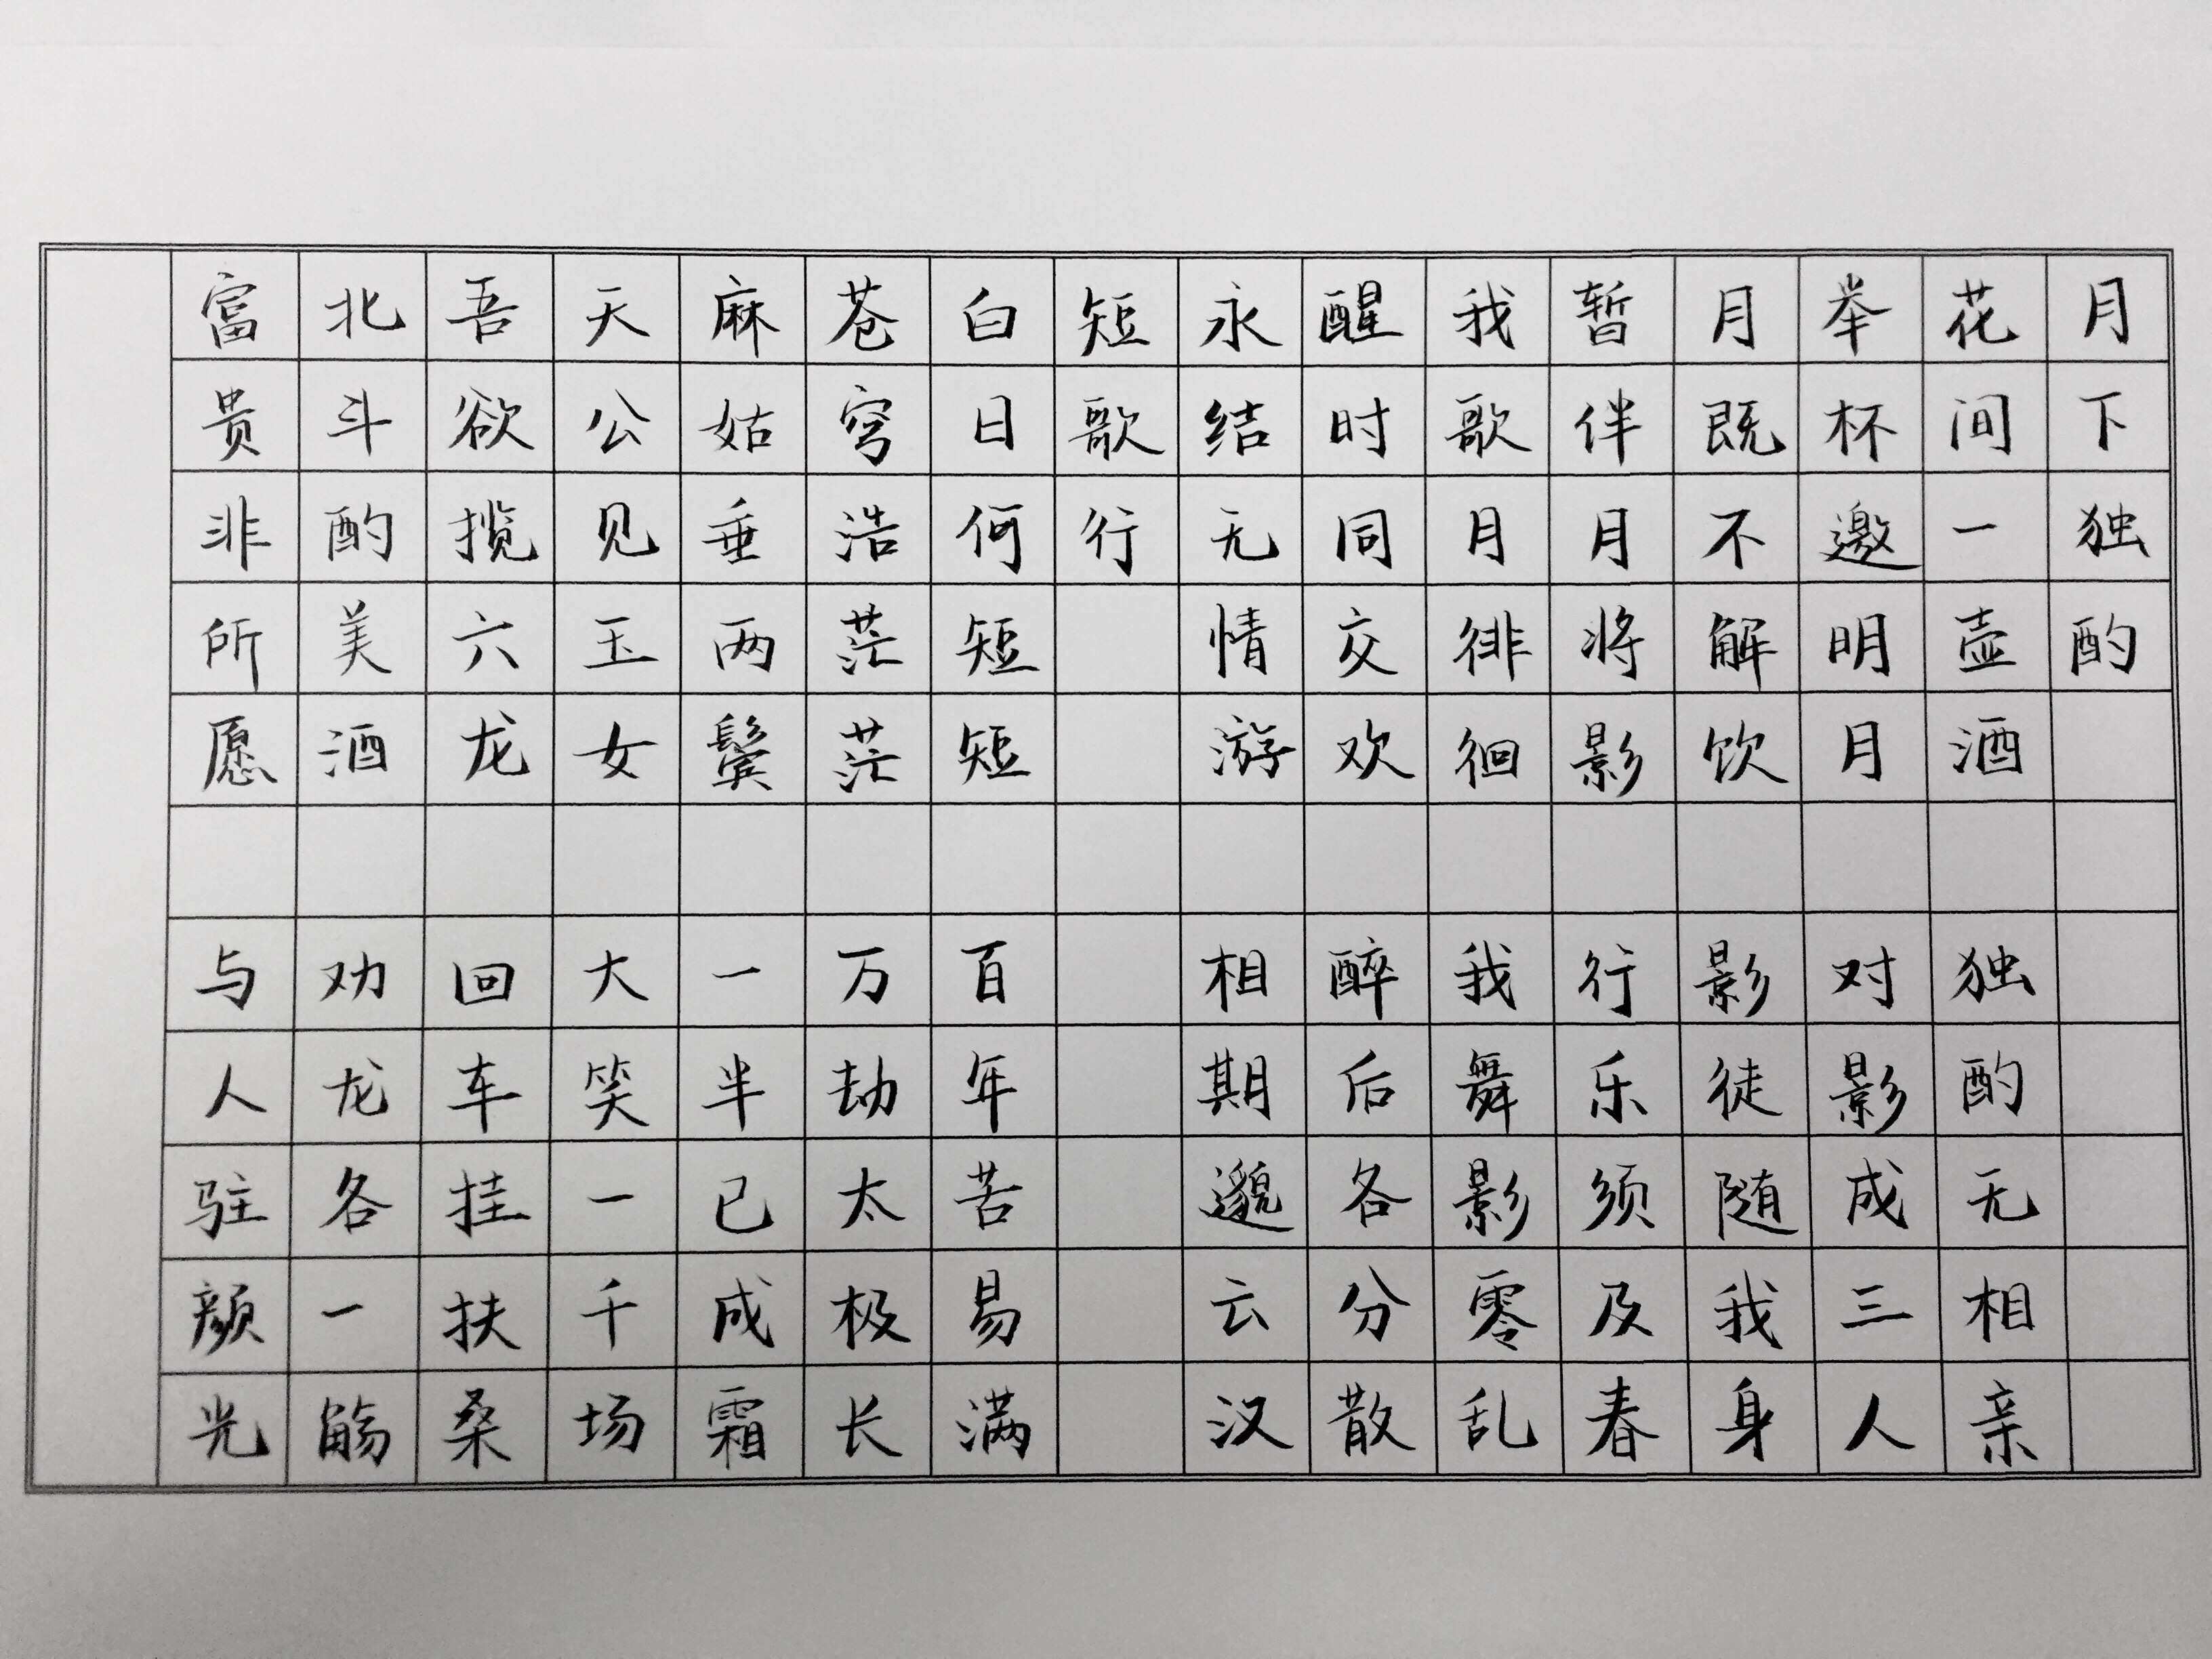 月下独酌
花间一壶酒 独酌无相亲
举杯邀明月 对影成三人
月既不解饮 影徒随我身
暂伴月将影 行乐须及春
我歌月徘徊 我舞影零乱
醒时同交欢 醉后各分散
永结无情游 相期邈云汉
短歌行
白日何短短 百年苦易满
苍穹浩茫茫 万劫太极长
麻姑垂两鬓 一半已成霜
天公见玉女 大笑一千场
吾欲揽六龙 回车挂扶桑
北斗酌美酒 劝龙各一觞
富贵非所愿 与人驻颜光